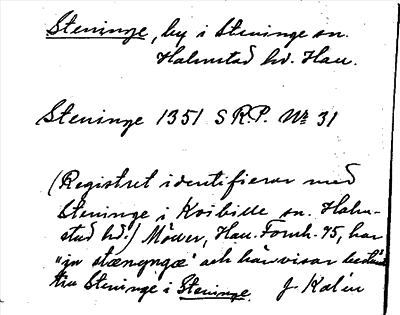 Steninge, by i Steninge sn.
Halmstad hd. Hall.
Steninge 1351 SRP. № 31
(Registret identifierar med
Steninge i Kvibille sn. Halm-
stad hd.) Möwer, Hall. Fornh. 75, har
"in stænyngæ" och hänvisar
till Steninge i Steninge. J Kalén